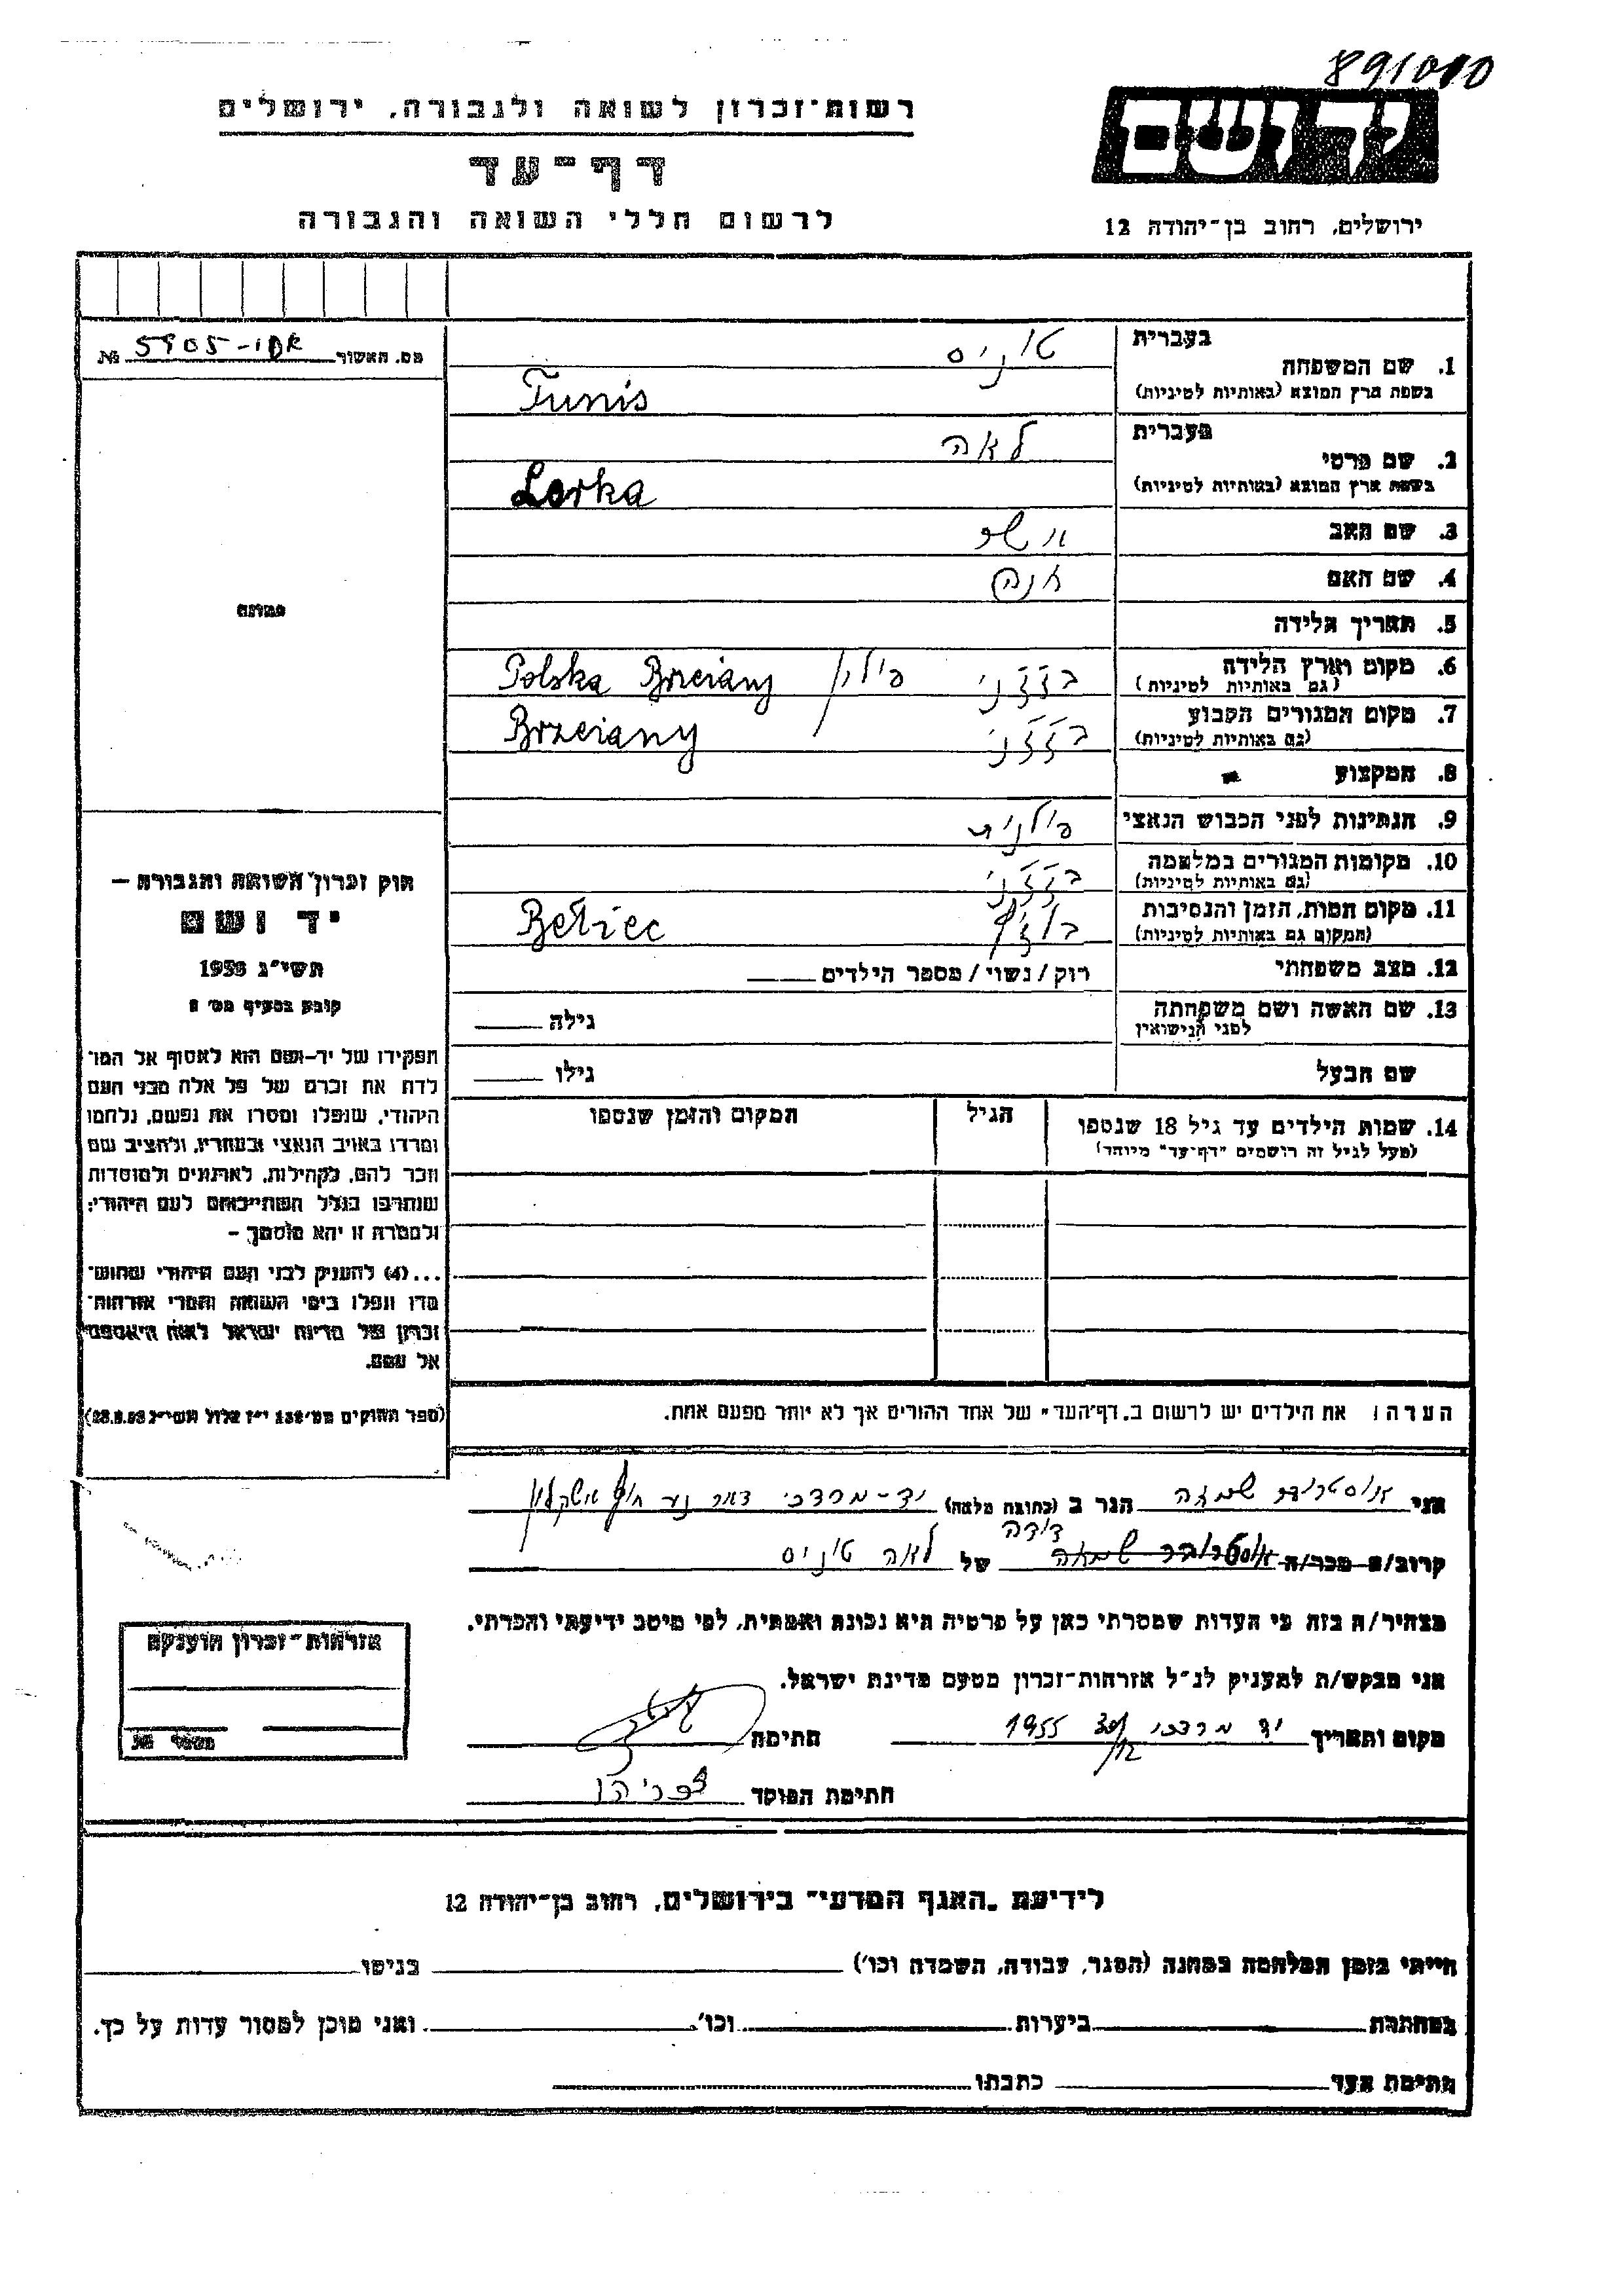 891000
יד ושם
רשות־זכרון לשואה ולגבורה, ירושלים
דף־עד
לרשום חללי השואה והגבורה
ירושלים, רחוב בן־יהודה 12
מס. האשור 5905 №
בעברית טוניס
1. שם המשפחה
בשפת ארץ המוצא (באותיות לטיניות) Tunis
בעברית לאה
2. שם פרטי
בשפת ארץ המוצא (באותיות לטיניות) Lorka
3. שם האב
4. שם האם חנה
5. תאריך הלידה
6. מקום וארץ הלידה
(גם באותיות לטיניות) פולין Polska Brzeiany
7. מקום המגורים הקבוע
(גם באותיות לטיניות) Brzeiany
8. המקצוע
9. הנתינות לפני הכבוש הנאצי פולנית
10. מקומות המגורים במלחמה
(גם באותיות לטיניות)
11. מקום המות, הזמן והנסיבות
(המקום גם באותיות לטיניות) Bełziec
12. מצב משפחתי רוק / נשוי / מספר הילדים
13. שם האשה ושם משפחתה
לפני הנישואין גילה
שם הבעל גילו
14. שמות הילדים עד גיל 18 שנספו הגיל המקום והזמן שנספו
(מעל לגיל זה רושמים "דף־עד" מיוחד)
הערה: את הילדים יש לרשום ב"דף־העד" של אחד ההורים אך לא יותר מפעם אחת.
תמונה
חוק זכרון השואה והגבורה —
יד ושם
תשי"ג 1953
קובע בסעיף מס'
תפקידו של יד־ושם הוא לאסוף אל המו־
לדת את זכרם של כל אלה מבני העם
היהודי, שנפלו ומסרו את נפשם, נלחמו
ומרדו באויב הנאצי ובעוזריו, ולהציב שם
וזכר להם, לקהילות, לארגונים ולמוסדות
שנחרבו בגלל השתייכותם לעם היהודי;
ולמטרה זו יהא מוסמך —
...(4) להעניק לבני העם היהודי שהוש־
מדו ונפלו בימי השואה והמרי אזרחות־
זכרון של מדינת ישראל לאות היאספם
אל עמם.
(ספר החוקים מס' 132 י"ז אלול תשי"ג 28.8.53)
אני הגר ב (כתובת מלאה) יד-מרדכי דאר נע חוף אשקלון
דודה
קרוב/ה מכר/ה של לאה טוניס
מצהיר/ה בזה כי העדות שמסרתי כאן על פרטיה היא נכונה ואמתית, לפי מיטב ידיעתי והכרתי.
אני מבקש/ת להעניק לנ"ל אזרחות־זכרון מטעם מדינת ישראל.
מקום ותאריך יד מרדכי 30/12 1955 חתימה
חתימת הפוקד
אזרחות־זכרון הוענקה
מספר
לידיעת "האגף המדעי" בירושלים, רחוב בן־יהודה 12
הייתי בזמן המלחמה במחנה (הסגר, עבודה, השמדה וכו') בגיטו
במחתרת ביערות וכו'. ואני מוכן למסור עדות על כך.
חתימת העד כתבתו